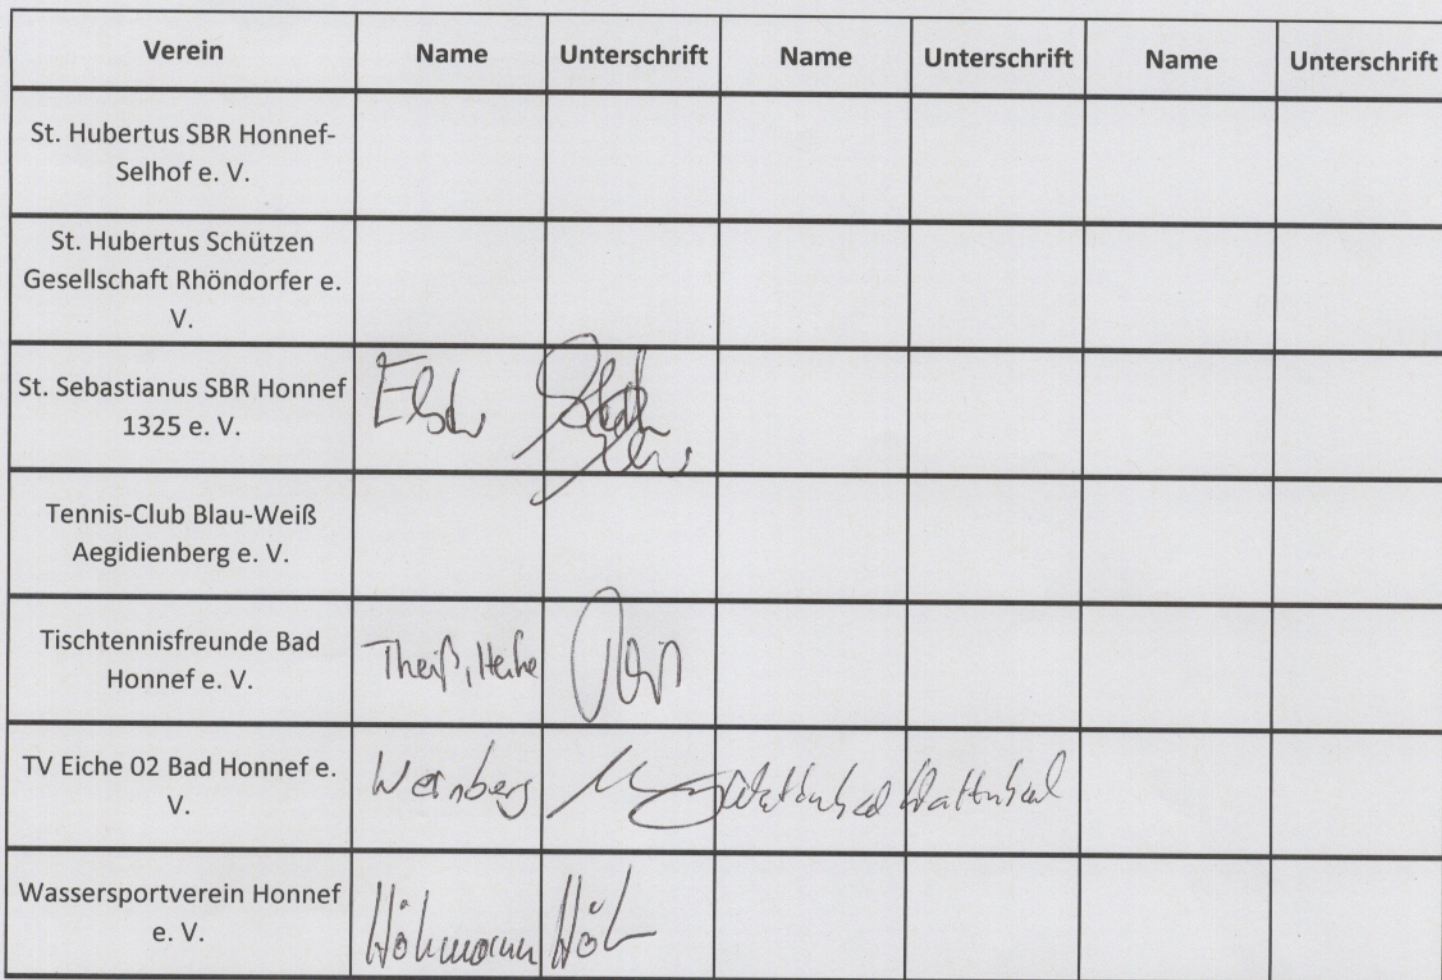 Verein Name Unterschrift Name Unterschrift Name Unterschrift
St. Hubertus SBR Honnef-
Selhof e. V.
St. Hubertus Schützen
Gesellschaft Rhöndorfer e.
V.
St. Sebastianus SBR Honnef
1325 e. V.
Tennis-Club Blau-Weiß
Aegidienberg e. V.
Tischtennisfreunde Bad
Honnef e. V.
Theiß, Heike
TV Eiche 02 Bad Honnef e.
V.
Weinberg
Wassersportverein Honnef
e. V.
Höhmann